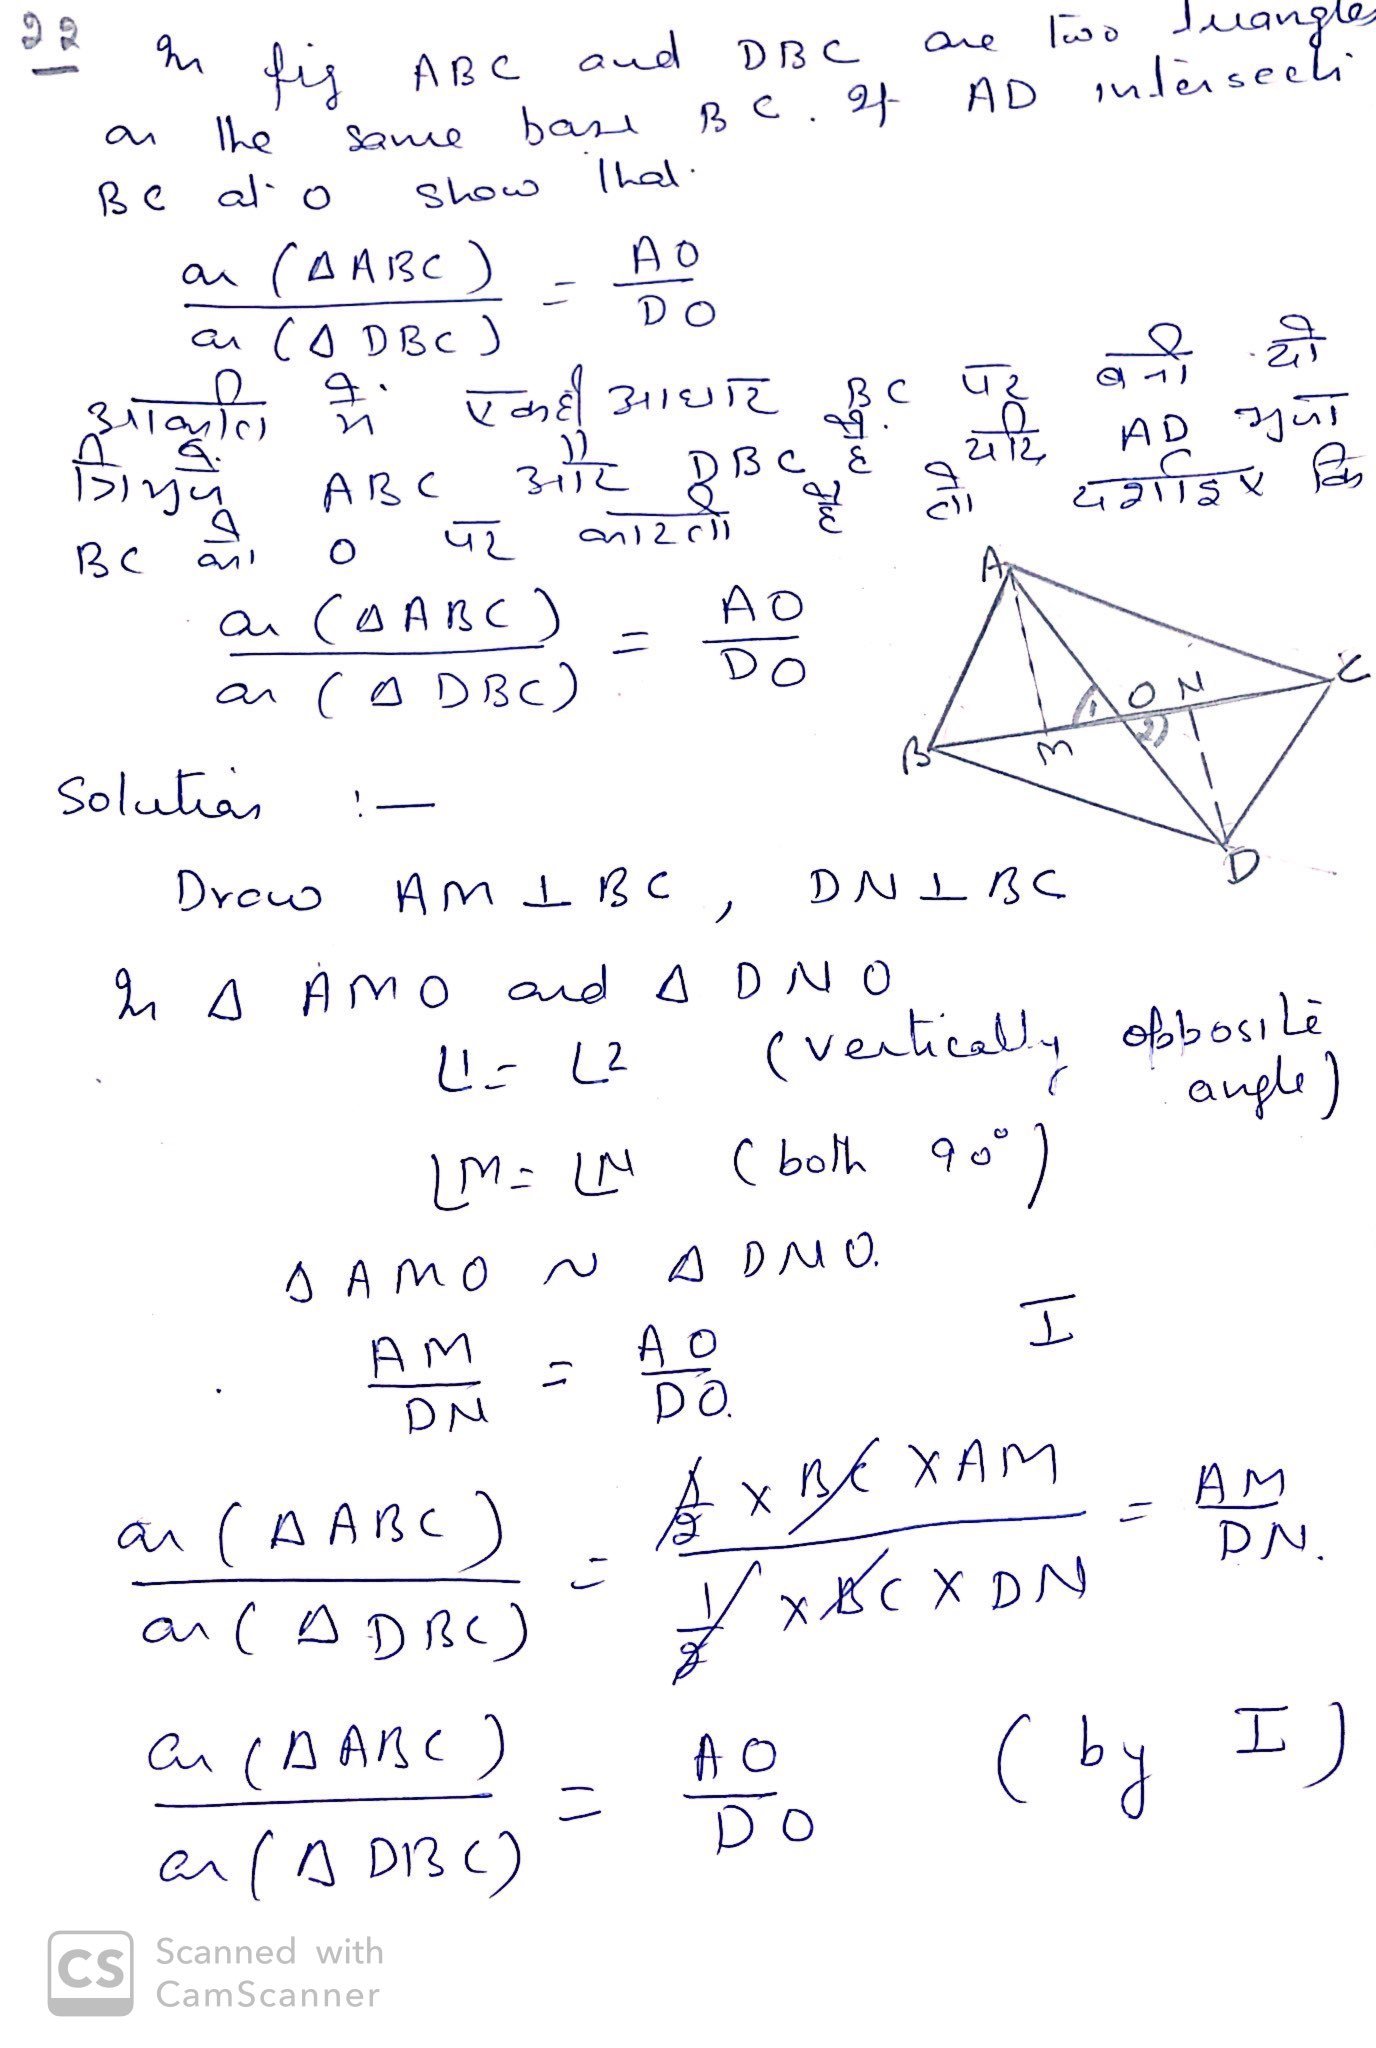 22
In fig ABC and DBC are two triangles
on the same base BC. If AD intersects
BC at O show that.
ar (Δ ABC) / ar (Δ DBC) = AO / DO
आकृति में एक ही आधार BC पर बनी दो
त्रिभुजें ABC और DBC हैं. यदि AD भुजा
BC को O पर काटती है तो दर्शाइए कि
ar (Δ ABC) / ar (Δ DBC) = AO / DO
A
B
C
D
M
O
N
1
2
Solution :—
Draw AM ⊥ BC, DN ⊥ BC
In Δ AMO and Δ DNO
∠1 = ∠2 (vertically opposite
angle)
∠M = ∠N (both 90°)
Δ AMO ~ Δ DNO.
AM / DN = AO / DO. I
ar (Δ ABC) / ar (Δ DBC) = 1/2 × BC × AM / 1/2 × BC × DN = AM / DN.
ar (Δ ABC) / ar (Δ DBC) = AO / DO (by I)
CS Scanned with
CamScanner